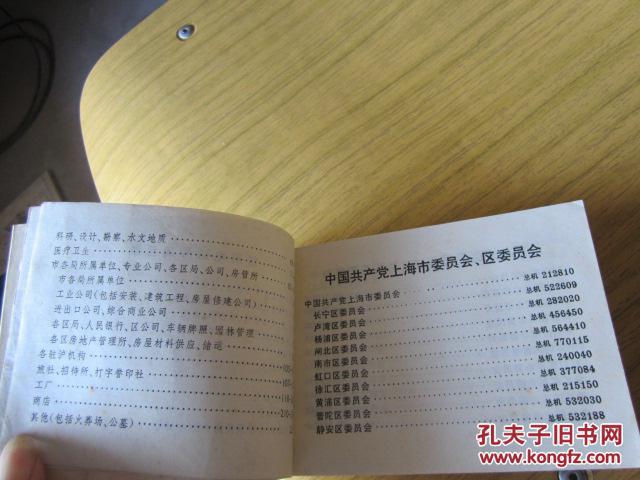 科研、设计、勘察、水文地质
医疗卫生
市各局所属单位、专业公司、各区局、公司、房管所
市各局所属单位
工业公司(包括安装、建筑工程、房屋修建公司)
进出口公司、综合商业公司
各区局、人民银行、区公司、车辆牌照、园林管理
各区房地产管理所、房屋材料供应、储运
各驻沪机构
旅社、招待所、打字誊印社
工厂
商店
其他(包括火葬场、公墓)
中国共产党上海市委员会、区委员会
中国共产党上海市委员会 总机 212810
长宁区委员会 总机 522609
卢湾区委员会 总机 282020
杨浦区委员会 总机 456450
闸北区委员会 总机 564410
南市区委员会 总机 770115
虹口区委员会 总机 240040
徐汇区委员会 总机 377084
黄浦区委员会 总机 215150
普陀区委员会 总机 532030
静安区委员会 总机 532188
孔夫子旧书网
www.kongfz.com